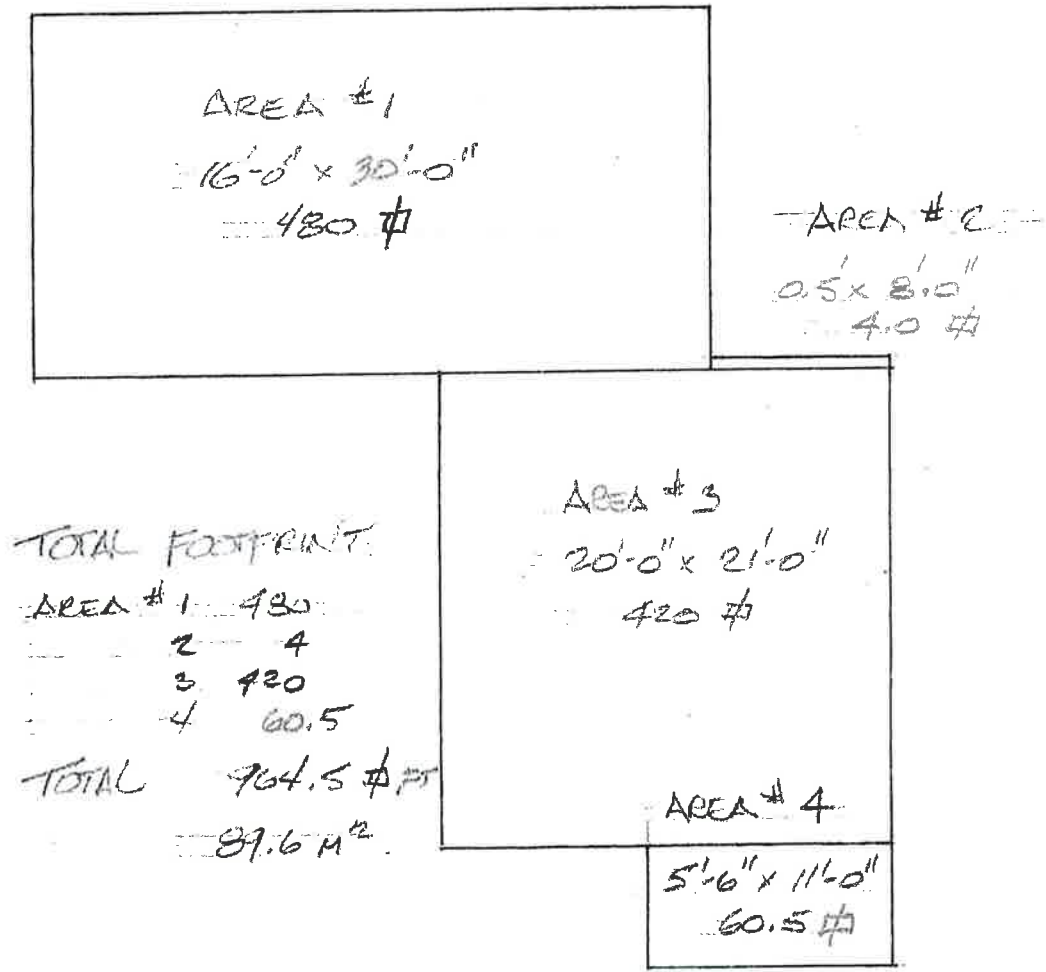 AREA #1
16'-0" x 30'-0"
480 ⌗
AREA #2
0.5' x 8'.0"
4.0 ⌗
AREA #3
20'-0" x 21'-0"
420 ⌗
TOTAL FOOTPRINT
AREA #1 480
2 4
3 420
4 60.5
TOTAL 964.5 ⌗ FT
89.6 M²
AREA #4
5'-6" x 11'-0"
60.5 ⌗